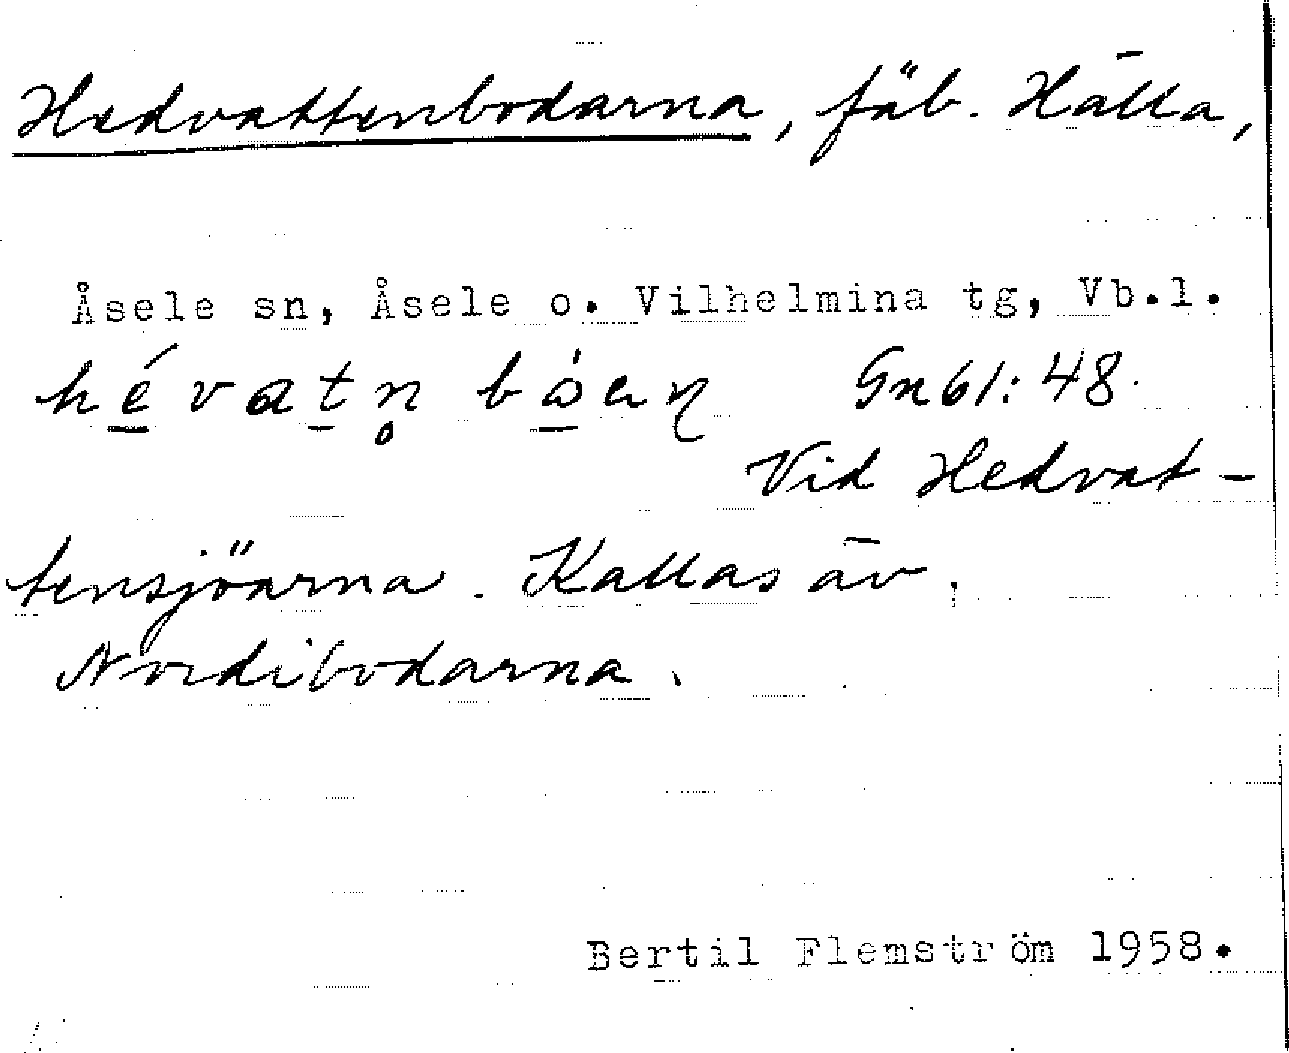 Hedvattenbodarna, fäb. Hälla,
Åsele sn, Åsele o. Vilhelmina tg, Vb.l.
Gn 61:48.
Vid Hedvat-
tensjöarna. Kallas äv.
Nordibodarna.
Bertil Flemström 1958.